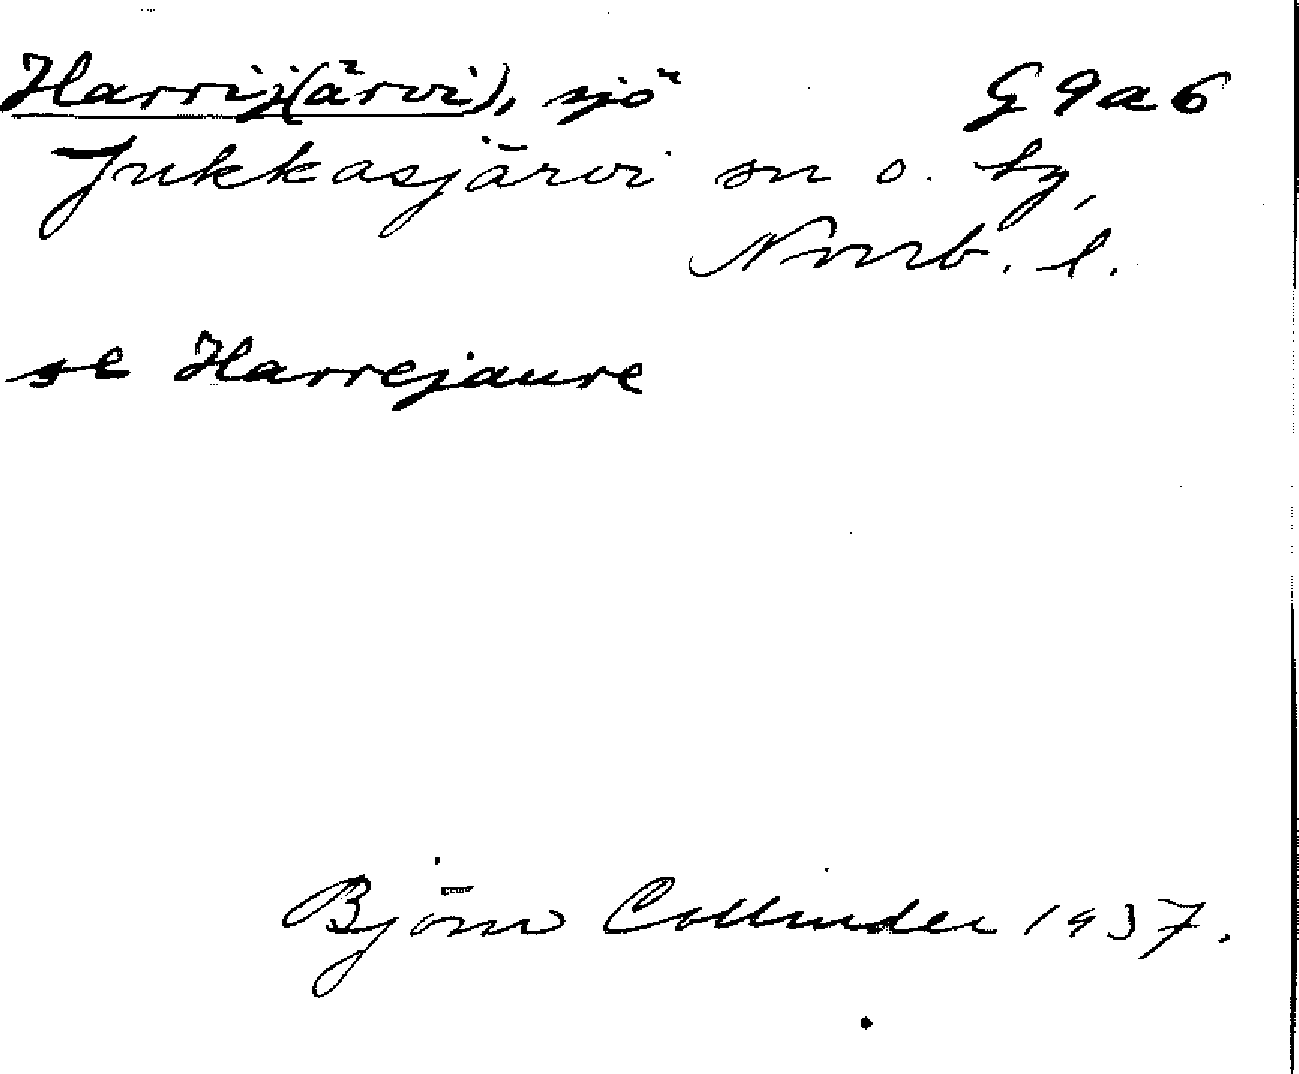 Harrij(ärvi), sjö G 9 a 6
Jukkasjärvi sn o. tg,
Norrb. l.
se Harrejaure
Björn Collinder 1937.